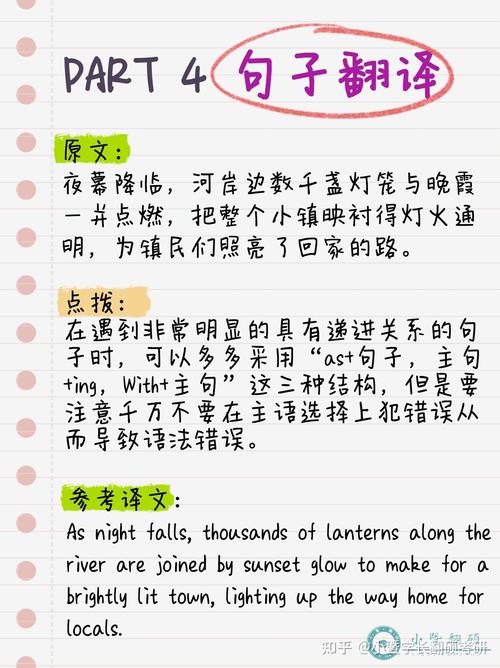 PART 4 句子翻译
原文：
夜幕降临，河岸边数千盏灯笼与晚霞
一并点燃，把整个小镇映衬得灯火通
明，为镇民们照亮了回家的路。
点拨：
在遇到非常明显的具有递进关系的句
子时，可以多多采用“as+句子，主句
+ing，With+主句”这三种结构，但是要
注意千万不要在主语选择上犯错误从
而导致语法错误。
参考译文：
As night falls, thousands of lanterns along the
river are joined by sunset glow to make for a
brightly lit town, lighting up the way home for
locals.
知乎